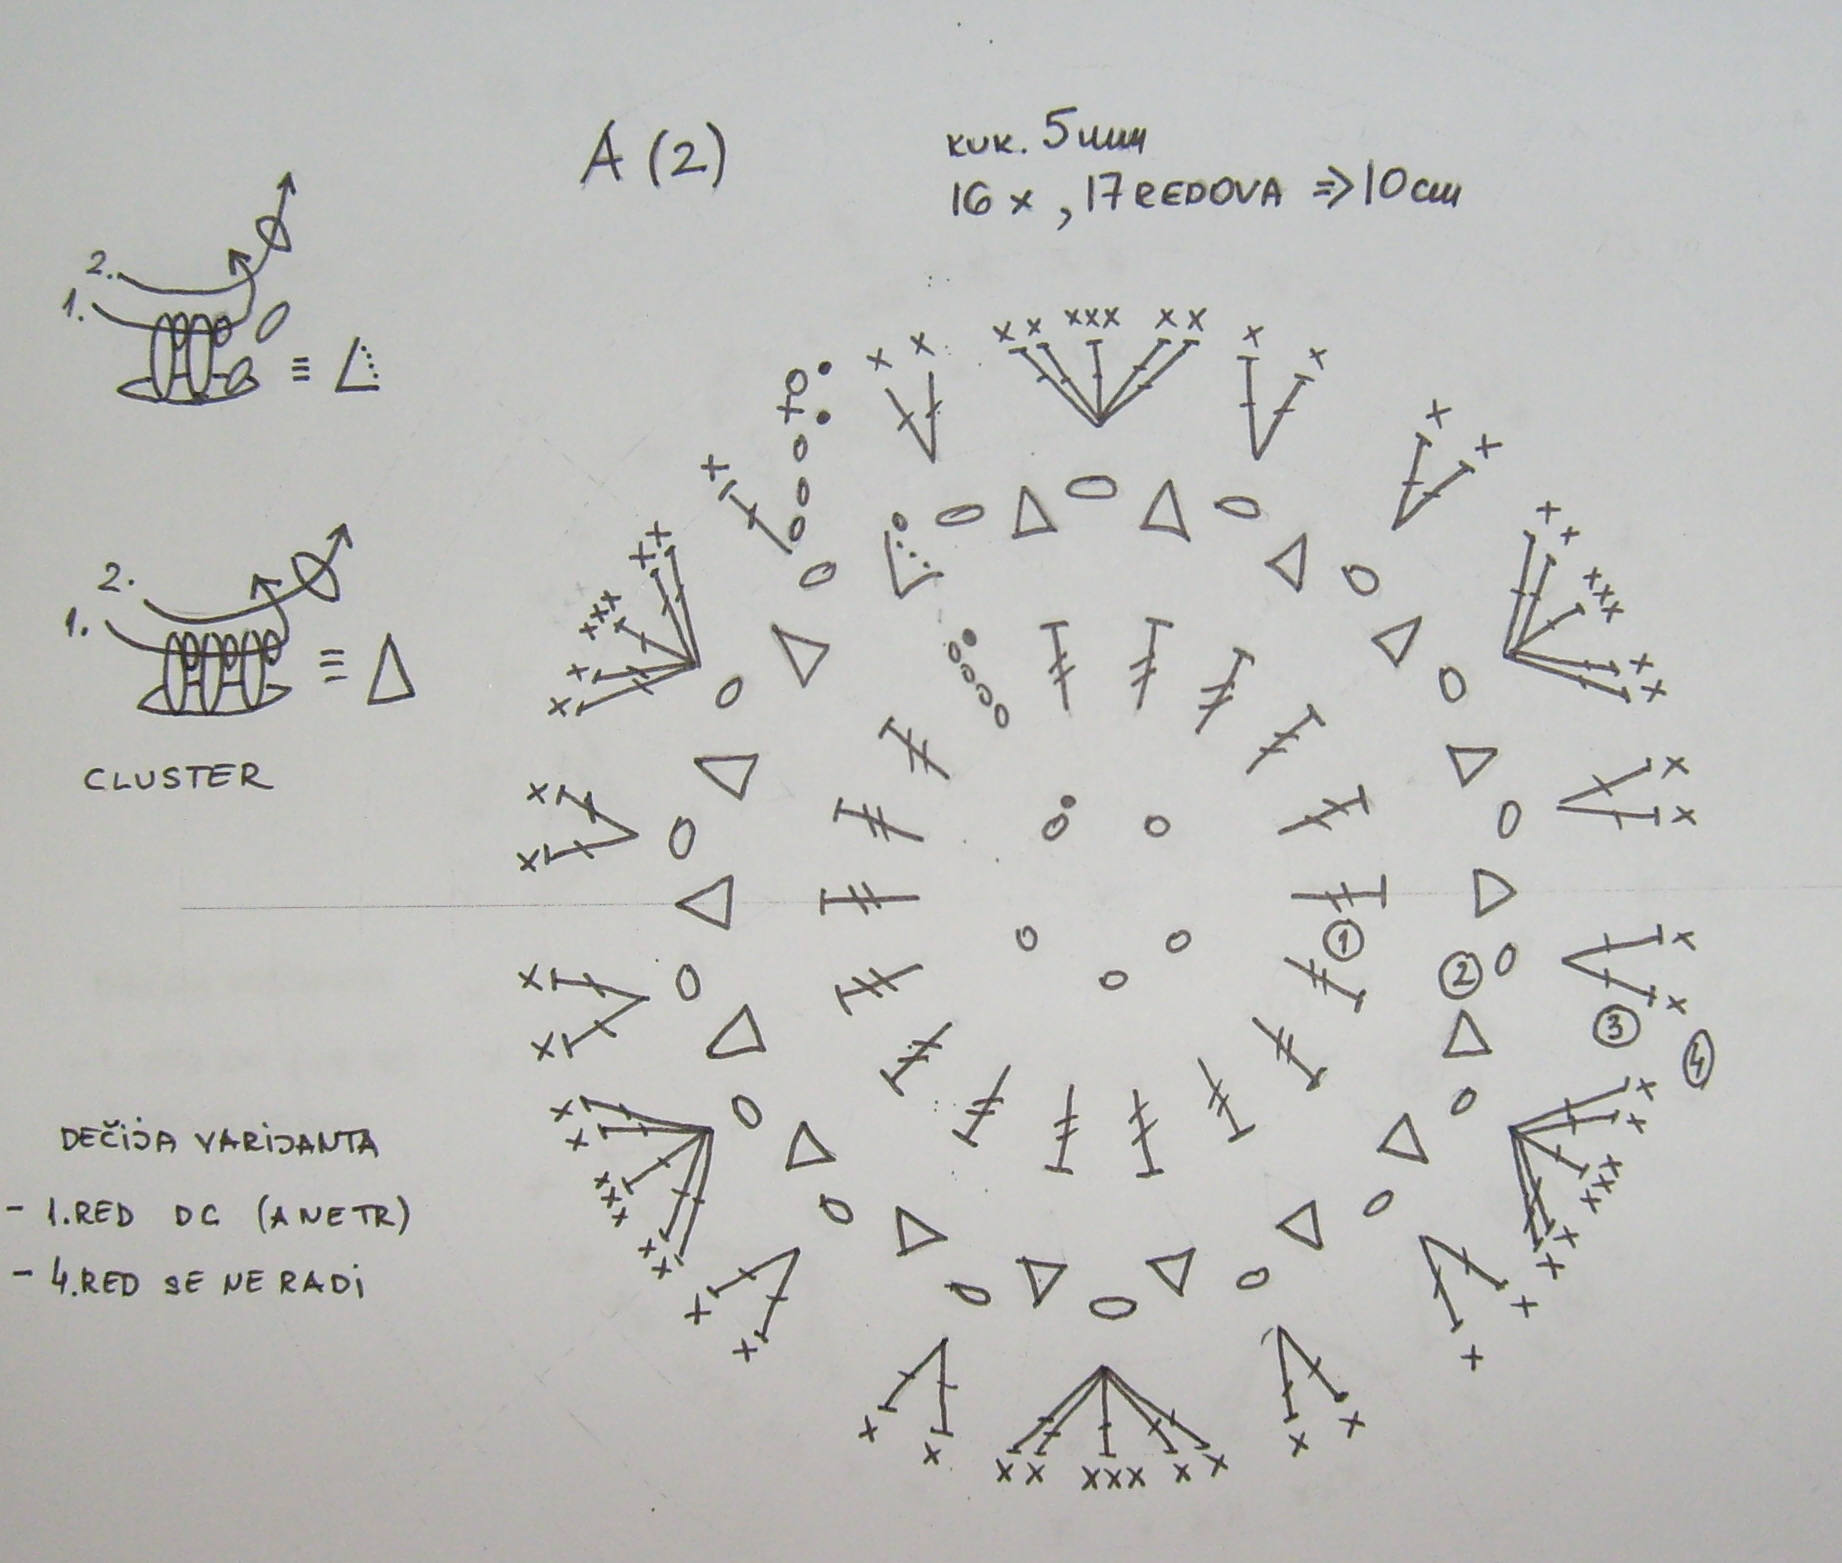 A (2)
KUK. 5mm
16 x , 17 REDOVA ⇒ 10cm
2.
1.
≡
2.
1.
≡
CLUSTER
1
2
3
4
DEČIJA VARIJANTA
- 1.RED DC (A NE TR)
- 4.RED SE NE RADI